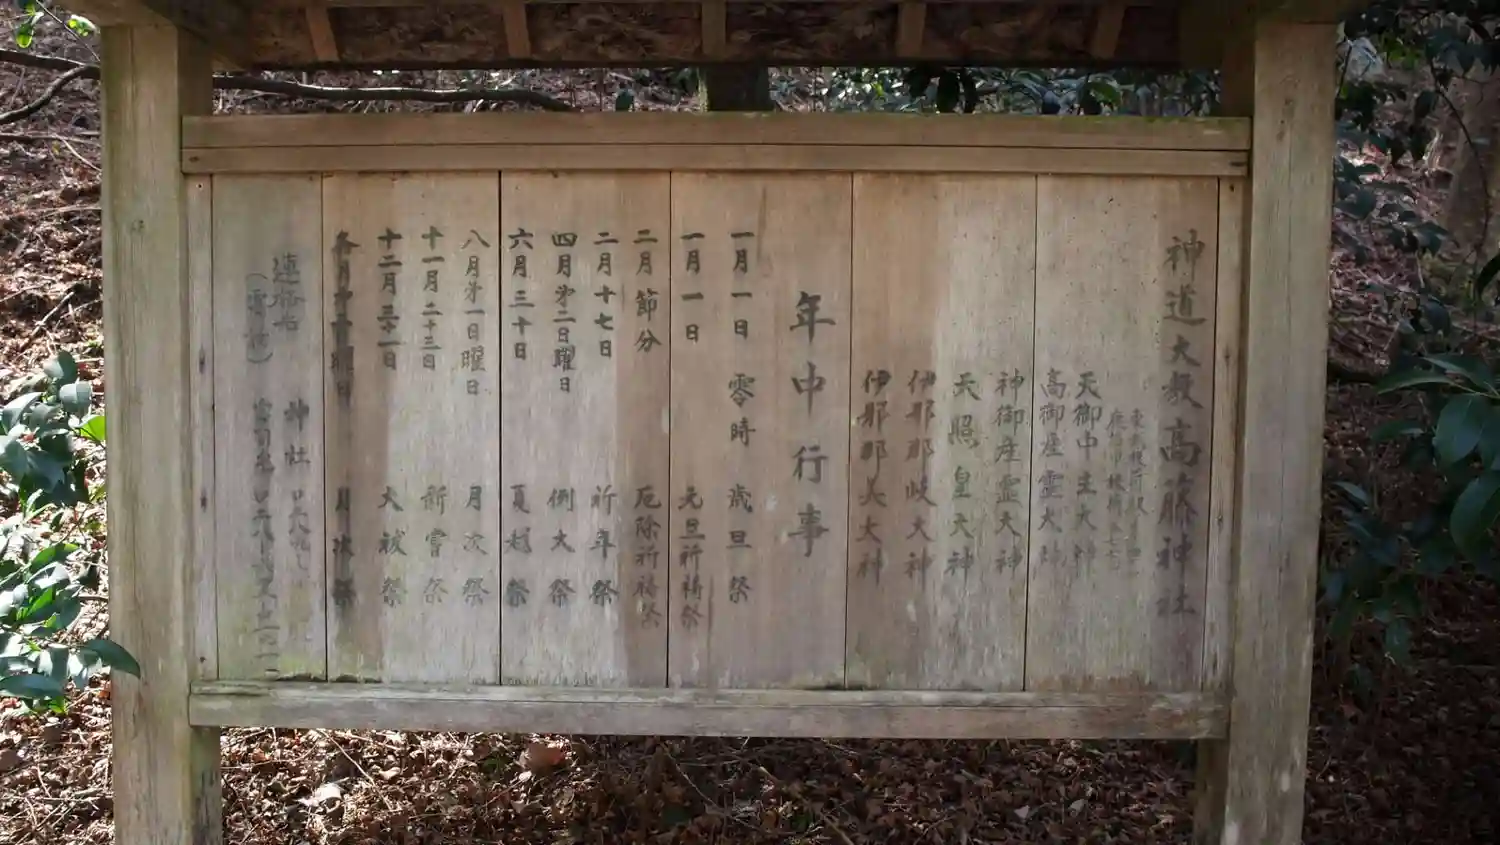 神道大教高藤神社
天御中主大神
高御産霊大神
神御産霊大神
天照皇大神
伊那那岐大神
伊那那美大神
年中行事
一月一日 零時 歳旦祭
一月一日 元旦祈祷祭
二月節分 厄除祈祷祭
二月十七日 祈年祭
四月第二日曜日 例大祭
六月三十日 夏越祭
八月第一日曜日 月次祭
十一月二十三日 新嘗祭
十二月三十一日 大祓祭
各月第 曜日 月次祭
連絡先 神社